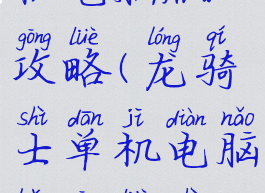 gōng lüè lóng qí
攻略(龙骑
shì dān jī diàn nǎo
士单机电脑